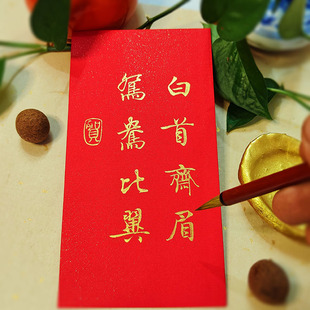 白首齊眉
鴛鴦比翼
賀